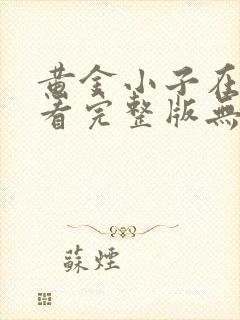 黄金小子在
看完整版無
蘇煙